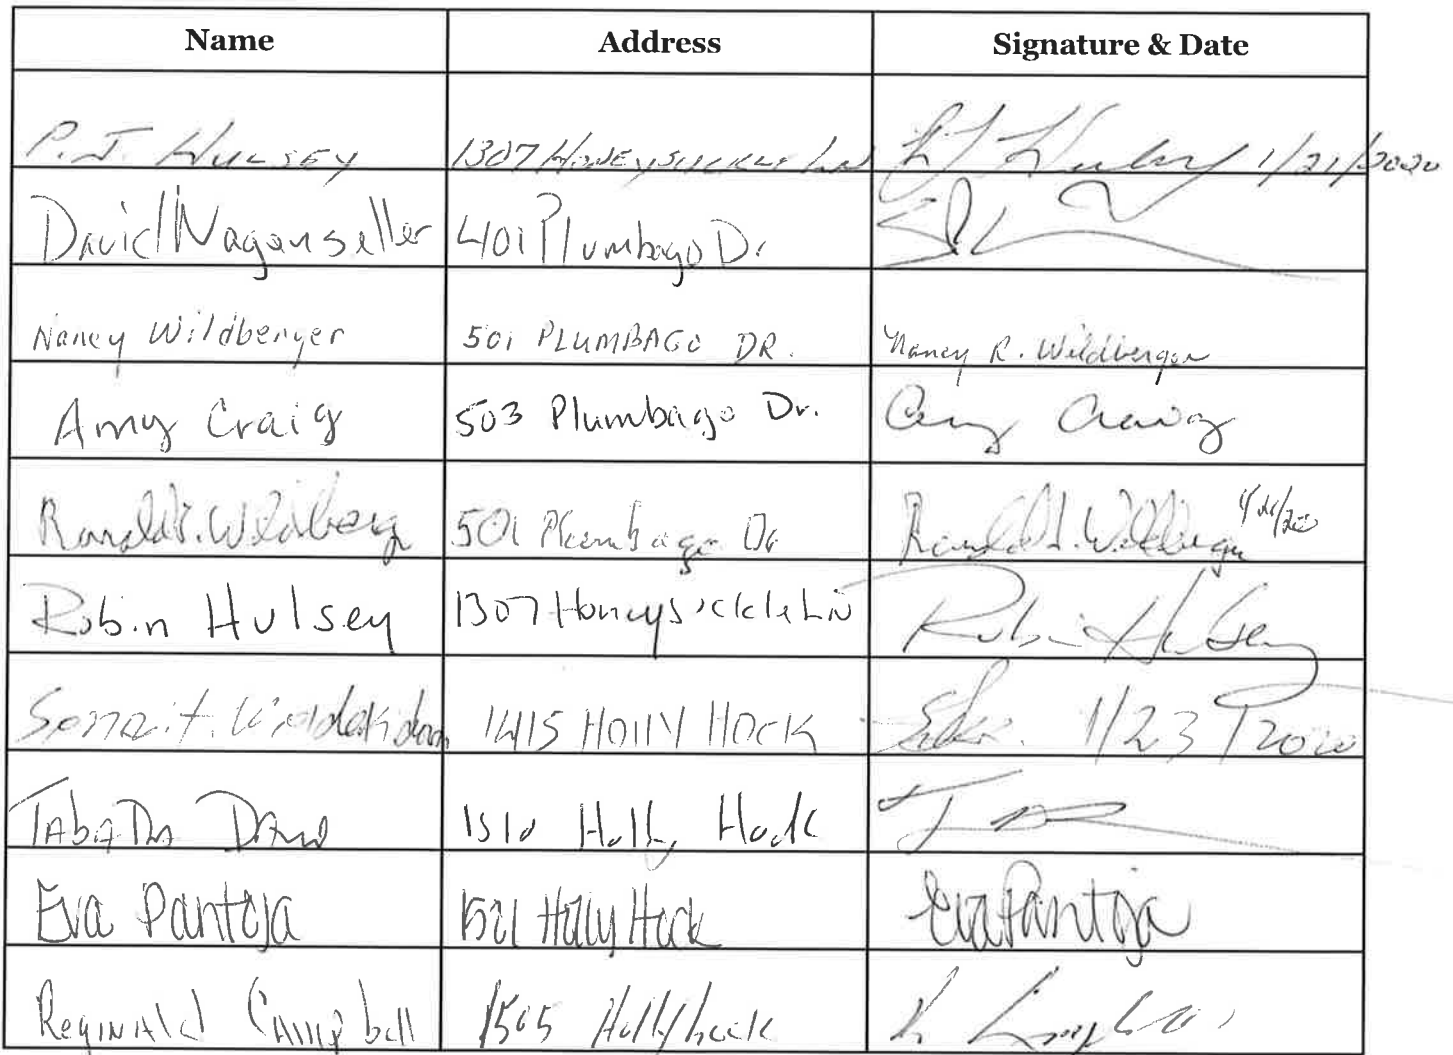 Name Address Signature & Date
P.J. HULSEY 1307 HONEYSUCKLE LN P J Hulsey 1/21/2020
David Wagenseller 401 Plumbago Dr
Nancy Wildberger 501 PLUMBAGO DR. Nancy R. Wildberger
Amy Craig 503 Plumbago Dr. Amy Craig
Ronald I. Wildberg 501 Plumbago Dr Ronald I. Wildberger
Robin Hulsey 1307 Honeysickle LN Robin Hulsey
1415 HOllY HOCK 1/23/2020
TAbATha 1510 Holly Hock
Eva Pantoja 1521 Holly Hock Eva Pantoja
Reginald Campbell 1505 Hollyhock R Campbell